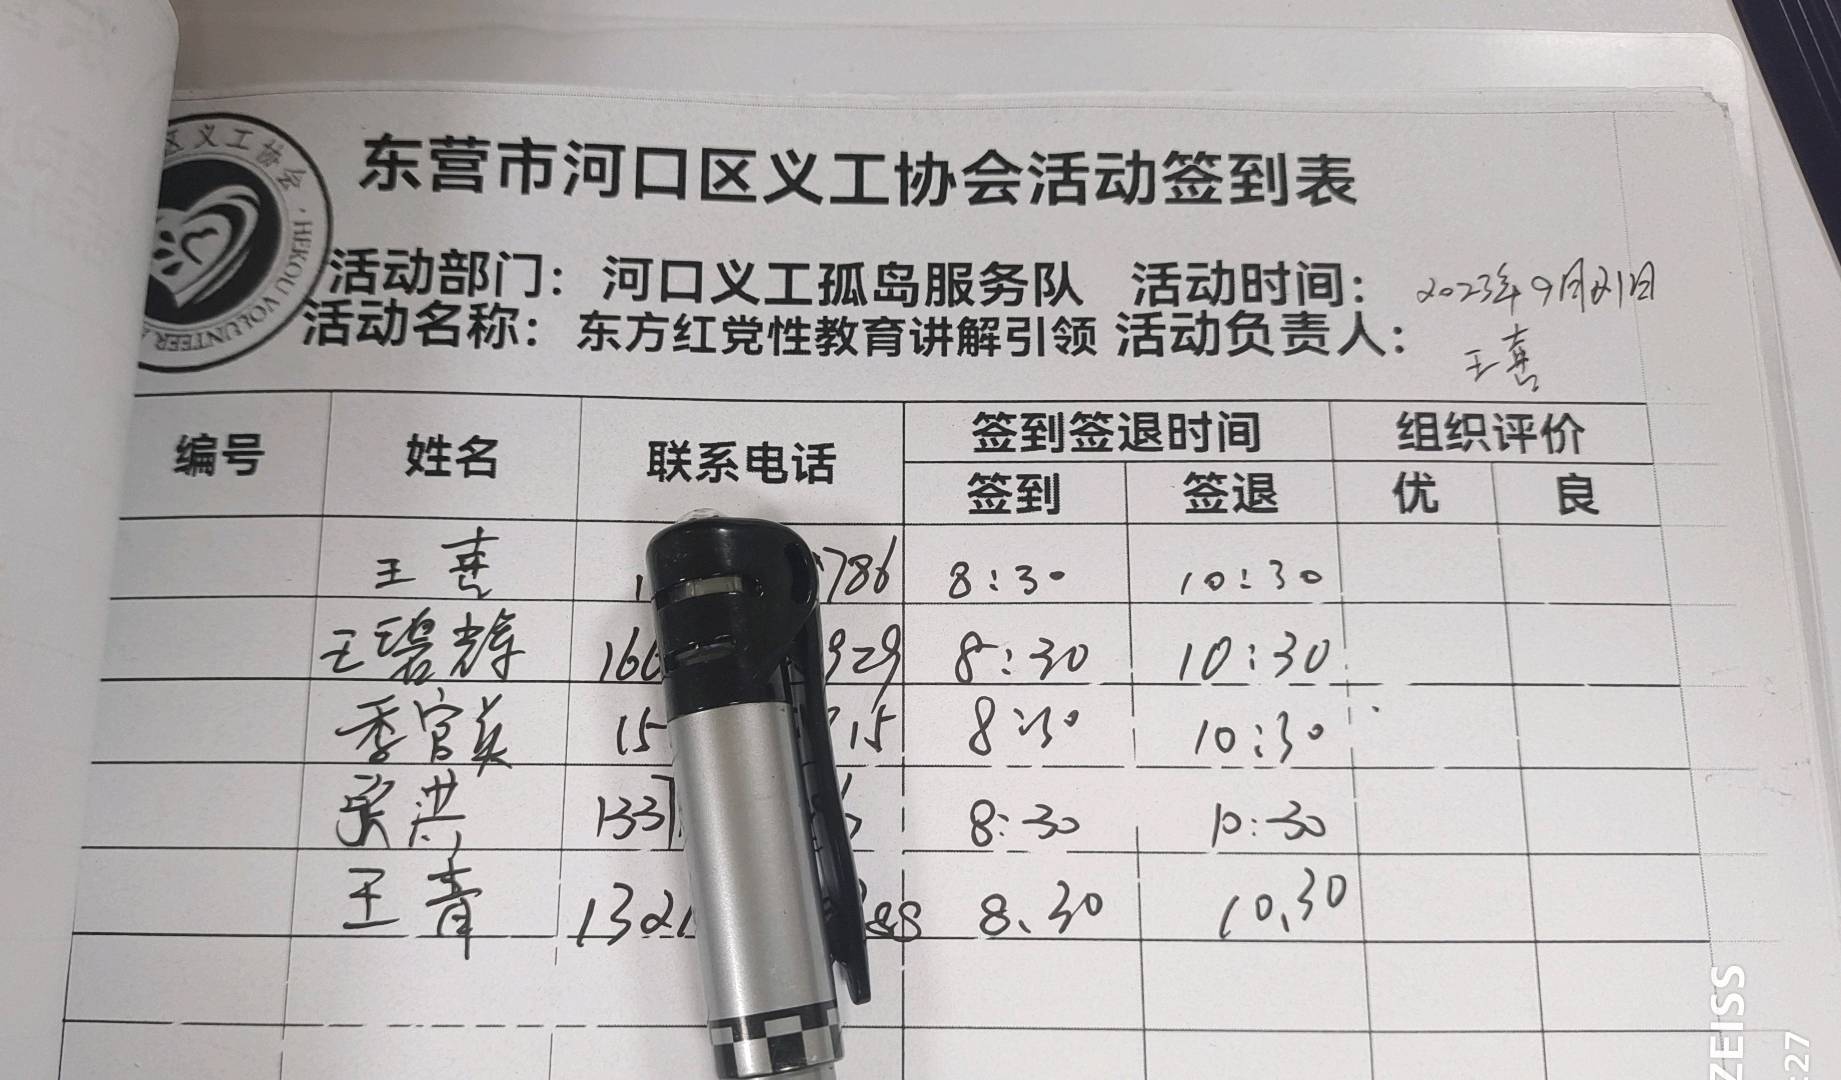 区义工协会·HEKOU VOLUNTEER
东营市河口区义工协会活动签到表
活动部门：河口义工孤岛服务队 活动时间：2023年9月21日
活动名称：东方红党性教育讲解引领 活动负责人：王喜
编号 姓名 联系电话 签到签退时间 组织评价
签到 签退 优 良
王喜 1 786 8:30 10:30
王碧辉 166 929 8:30 10:30
季官英 15 15 8:30 10:30
张洪 133 8:30 10:30
王青 132 288 8.30 10.30
ZEISS
:27